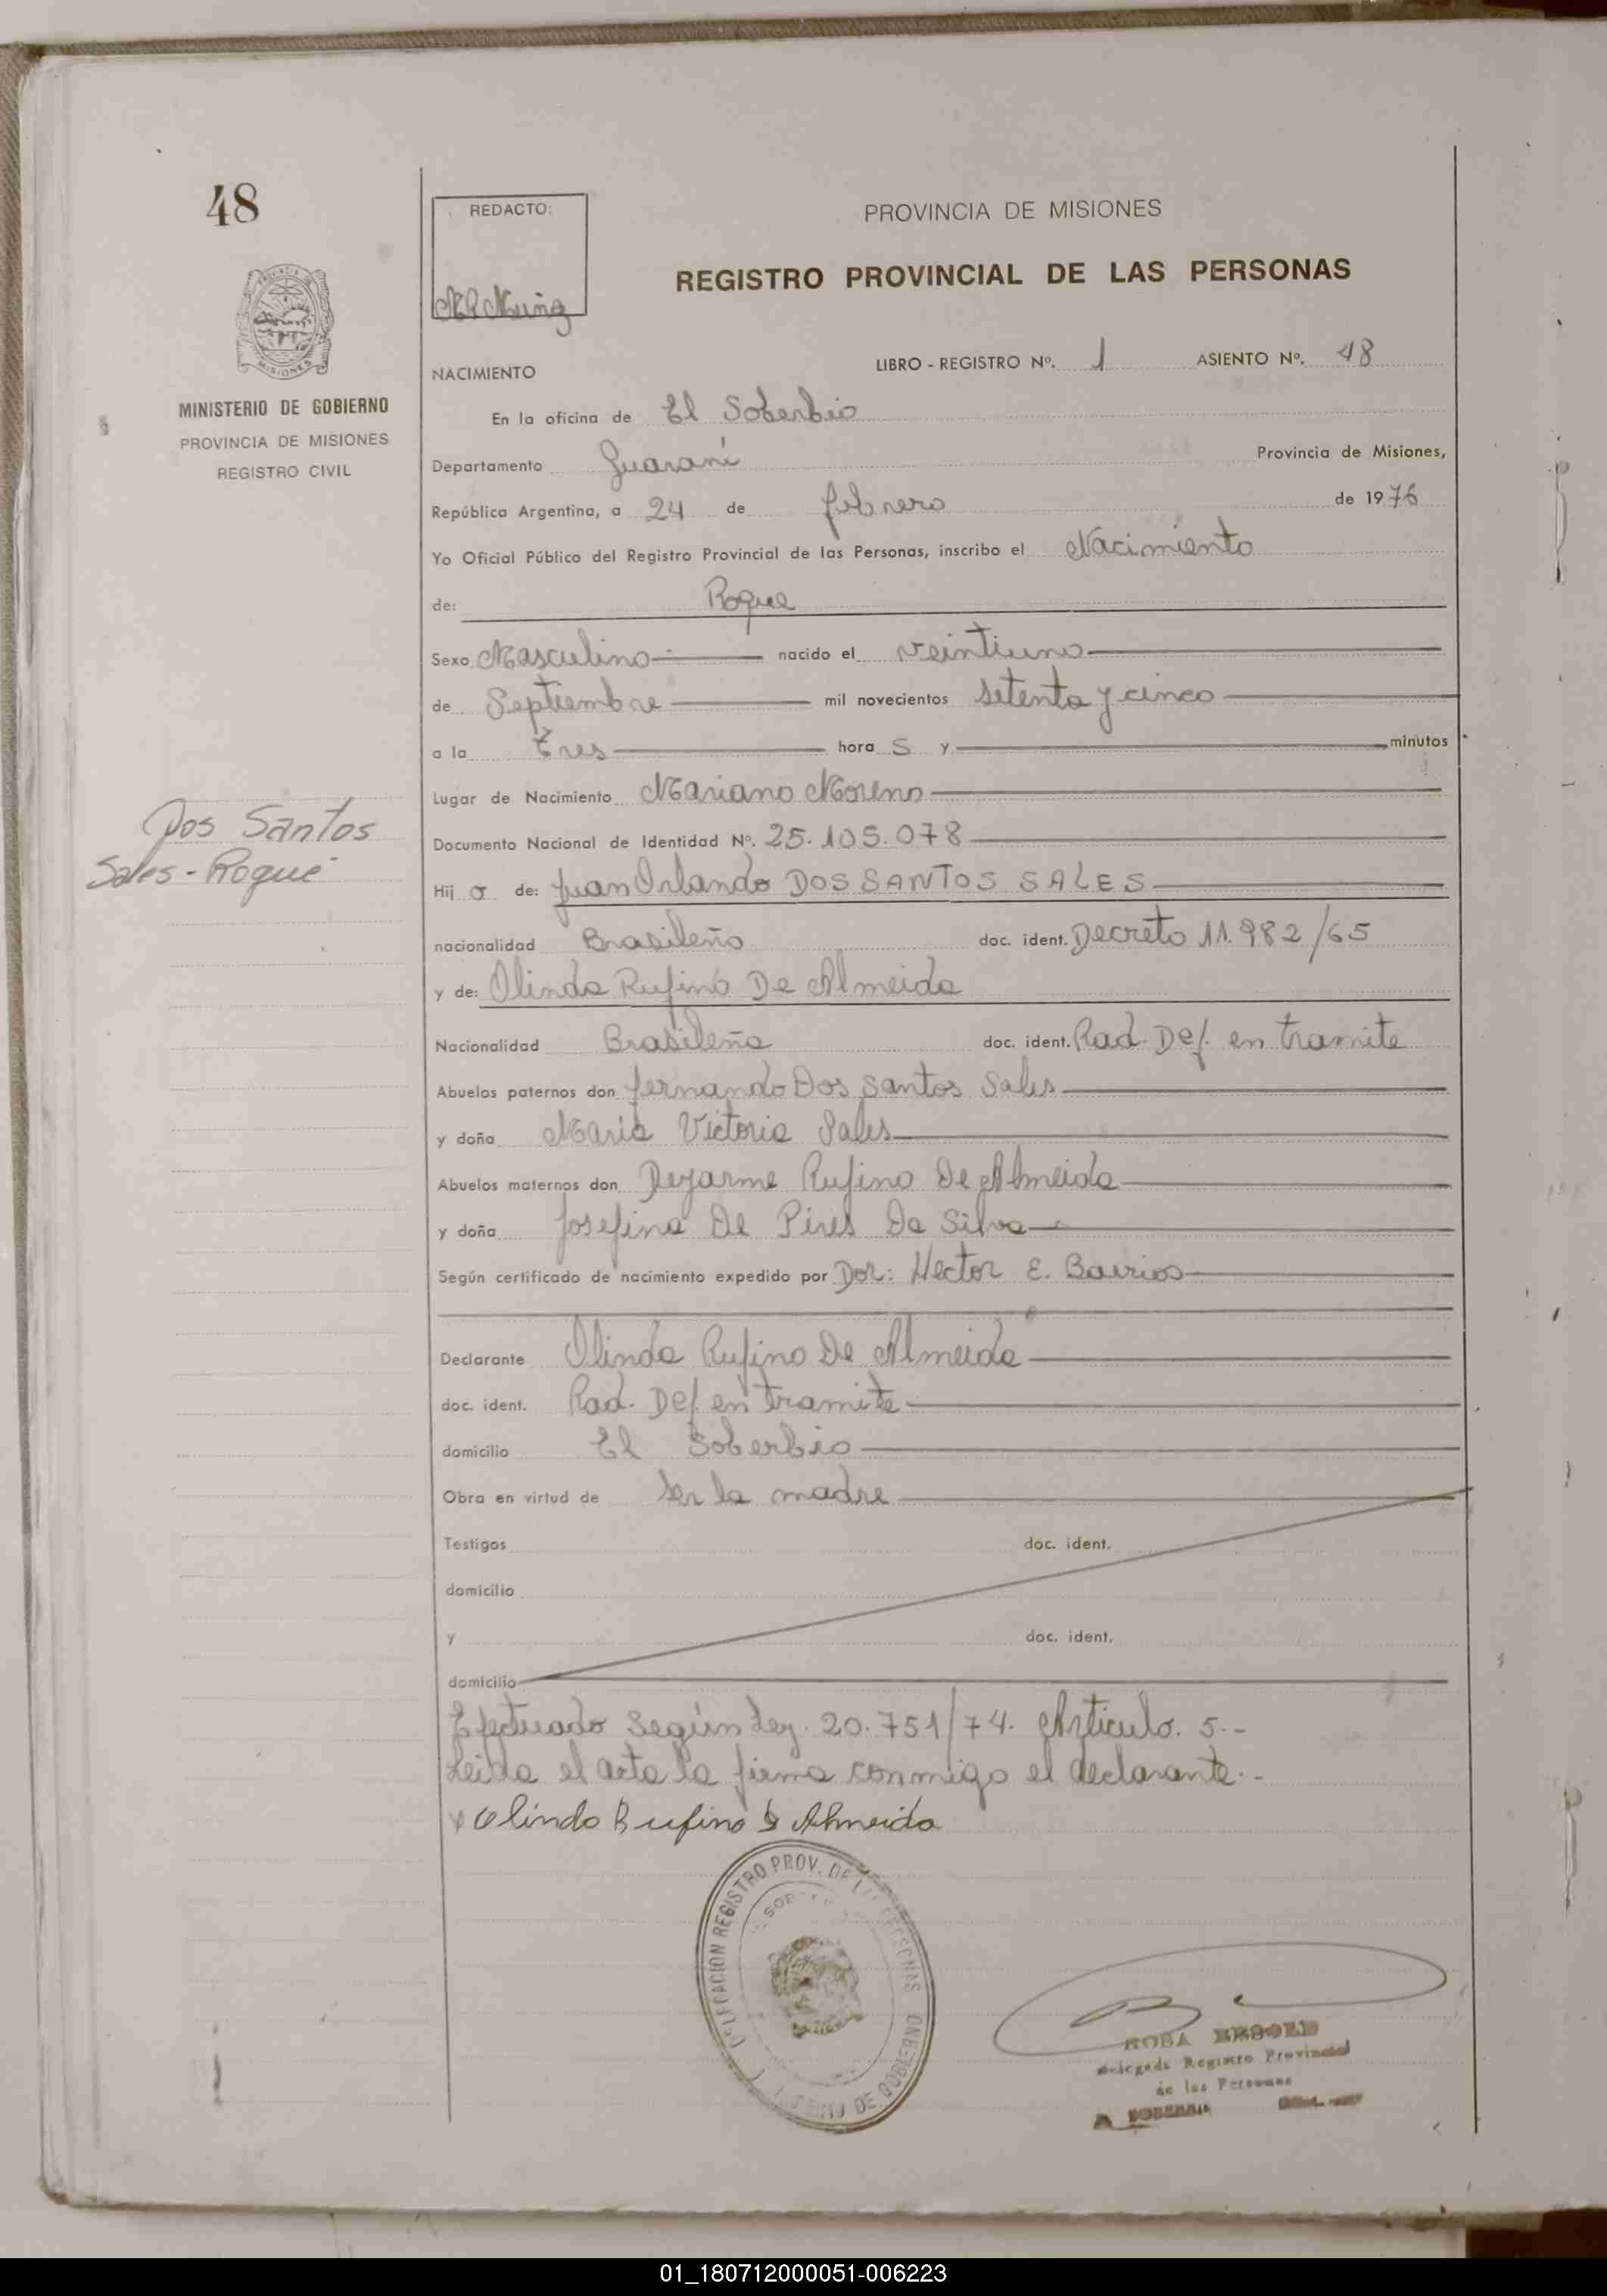 48
REDACTO:
PROVINCIA DE MISIONES
REGISTRO PROVINCIAL DE LAS PERSONAS
MISIONES
MINISTERIO DE GOBIERNO
PROVINCIA DE MISIONES
REGISTRO CIVIL
NACIMIENTO LIBRO - REGISTRO Nº. 1 ASIENTO Nº. 48
En la oficina de El Soberbio
Departamento Guaraní Provincia de Misiones,
República Argentina, a 24 de febrero de 1976
Yo Oficial Público del Registro Provincial de las Personas, inscribo el Nacimiento
de: Roque
Sexo Masculino nacido el veintiuno
de Septiembre mil novecientos setenta y cinco
a la tres hora s y minutos
Lugar de Nacimiento Mariano Moreno
Dos Santos
Sales - Roque
Documento Nacional de Identidad Nº. 25.105.078
Hij o de: Juan Orlando DOS SANTOS SALES
nacionalidad Brasileño doc. ident. Decreto 11.982/65
y de: Olinda Rufino De Almeida
Nacionalidad Brasileña doc. ident. Rad. Def. en tramite
Abuelos paternos don Fernando Dos Santos Sales
y doña Maria Victoria Sales
Abuelos maternos don Rufino De Almeida
y doña Josefina De Pires Da Silva
Según certificado de nacimiento expedido por Dor: Hector E. Barrios
Declarante Olinda Rufino De Almeida
doc. ident. Rad. Def. en tramite
domicilio El Soberbio
Obra en virtud de ser la madre
Testigos doc. ident.
domicilio
y doc. ident.
domicilio
Efectuado Según Ley. 20.751/74. Articulo. 5.-
Leida el acta la firma conmigo el declarante.-
Olinda Rufino D Almeida
DELEGACION REGISTRO PROV. DE
DE GOBIERNO
ROSA
Delegada Registro Provincial
de las Personas
01_180712000051-006223